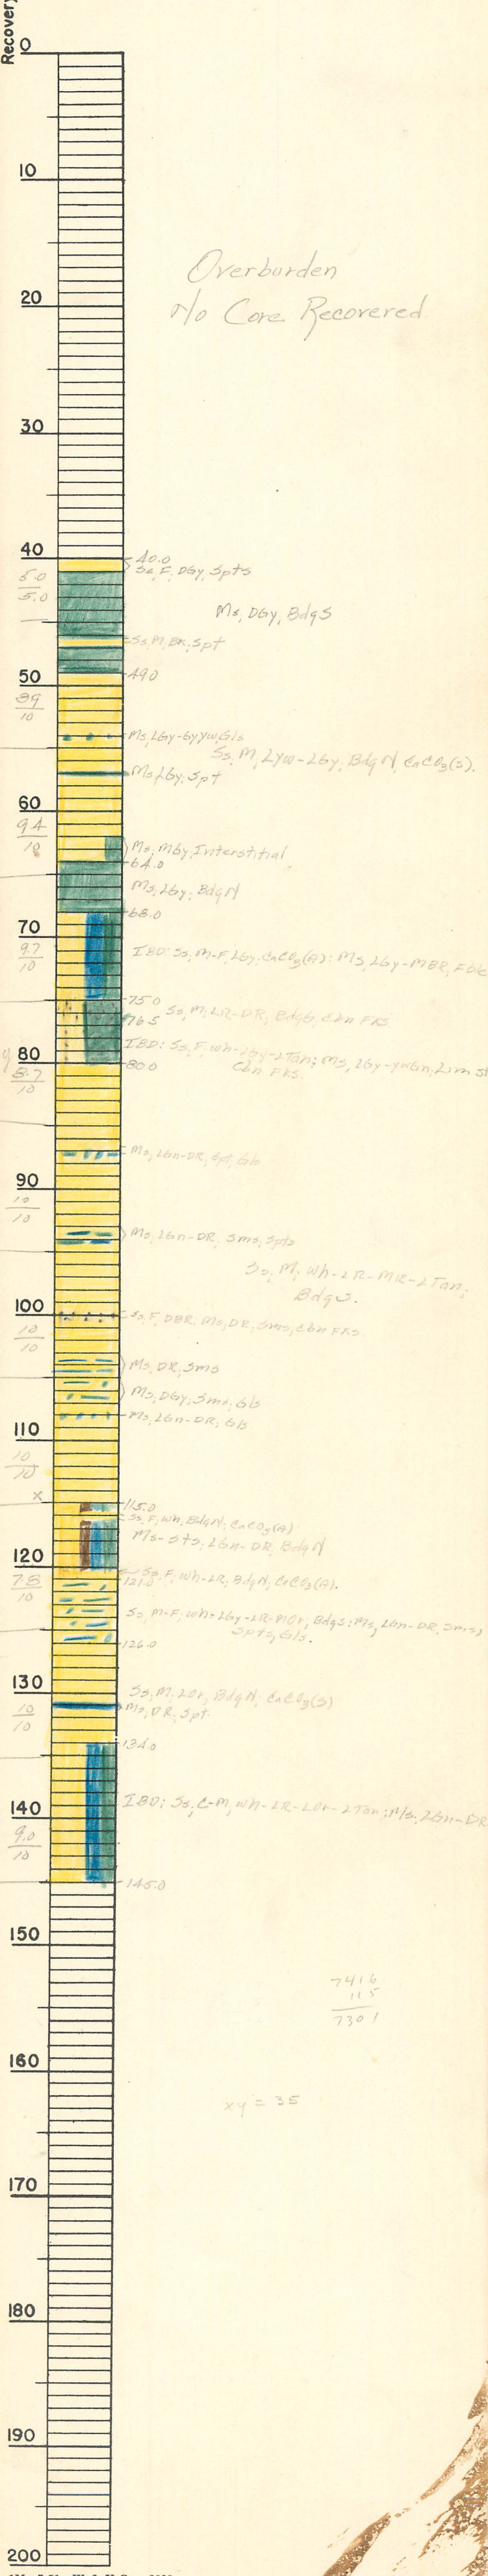 Recovery
0
10
Overburden
20
No Core Recovered
30
40
40.0
Ss, F, DGy, Spts
5.0
5.0
Ms, DGy, BdgS
Ss, M, BR, Spt
49.0
50
39
10
Ms, LGy-GyYw, Gls
Ss, M, LYw-LGy, BdgN, CaCO3(S).
Ms, LGy, Spt
60
9.4
10
Ms, MGy, Interstitial
64.0
Ms, LGy, BdgN
68.0
70
9.7
10
IBD: Ss, M-F, LGy, CaCO3(A): Ms, LGy-MBR, Fble
75.0
Ss, M, LR-DR, BdgG, Cbn FKS
76.5
IBD: Ss, F, Wh-LGy-LTan; Ms, LGy-YwGn; Lim st
Cbn FKS.
y
80
80.0
8.7
10
Ms, LGn-DR, Spt, Gls
90
10
10
Ms, LGn-DR, Sms, Spts
Ss, M, Wh-LR-MR-LTan;
BdgS.
100
Ss, F, DBR, Ms, DR, Sms, Cbn FKS
10
10
Ms, DR, Sms
Ms, DGy, Sms, Gls
Ms, LGn-DR, Gls
110
10
10
x
115.0
Ss, F, Wh, BdgN, CaCO3(A)
Ms-Sts, LGn-DR, BdgN
120
Ss, F, Wh-LR, BdgN, CaCO3(A).
121.0
7.8
10
Ss, M-F, Wh-LGy-LR-MOr, BdgS: Ms, LGn-DR, Sms,
Spts, Gls.
126.0
130
Ss, M, LOr, BdgN, CaCO3(S)
Ms, DR, Spt
10
10
134.0
140
IBD: Ss, C-M, Wh-LR-LOr-LTan; Ms, LGn-DR
9.0
10
145.0
150
7416
115
7301
160
xy = 35
170
180
190
200